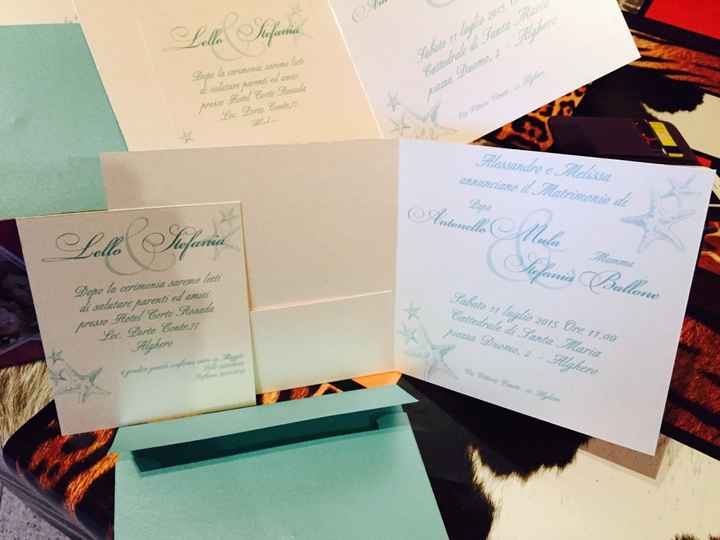 Lello & Stefania
Dopo la cerimonia saremo lieti
di salutare parenti ed amici
presso Hotel Corte Rosada
Loc. Porto Conte,
Sabato 11 luglio 2015
Cattedrale di Santa Maria
piazza Duomo, 2 - Alghero
Lello & Stefania
Dopo la cerimonia saremo lieti
di salutare parenti ed amici
presso Hotel Corte Rosada
Loc. Porto Conte,
Alghero
Alessandro e Melissa
annunciano il Matrimonio di
Papà
Antonello Mula
&
Mamma
Stefania Ballone
Sabato 11 luglio 2015 Ore 17.00
Cattedrale di Santa Maria
piazza Duomo, 2 - Alghero